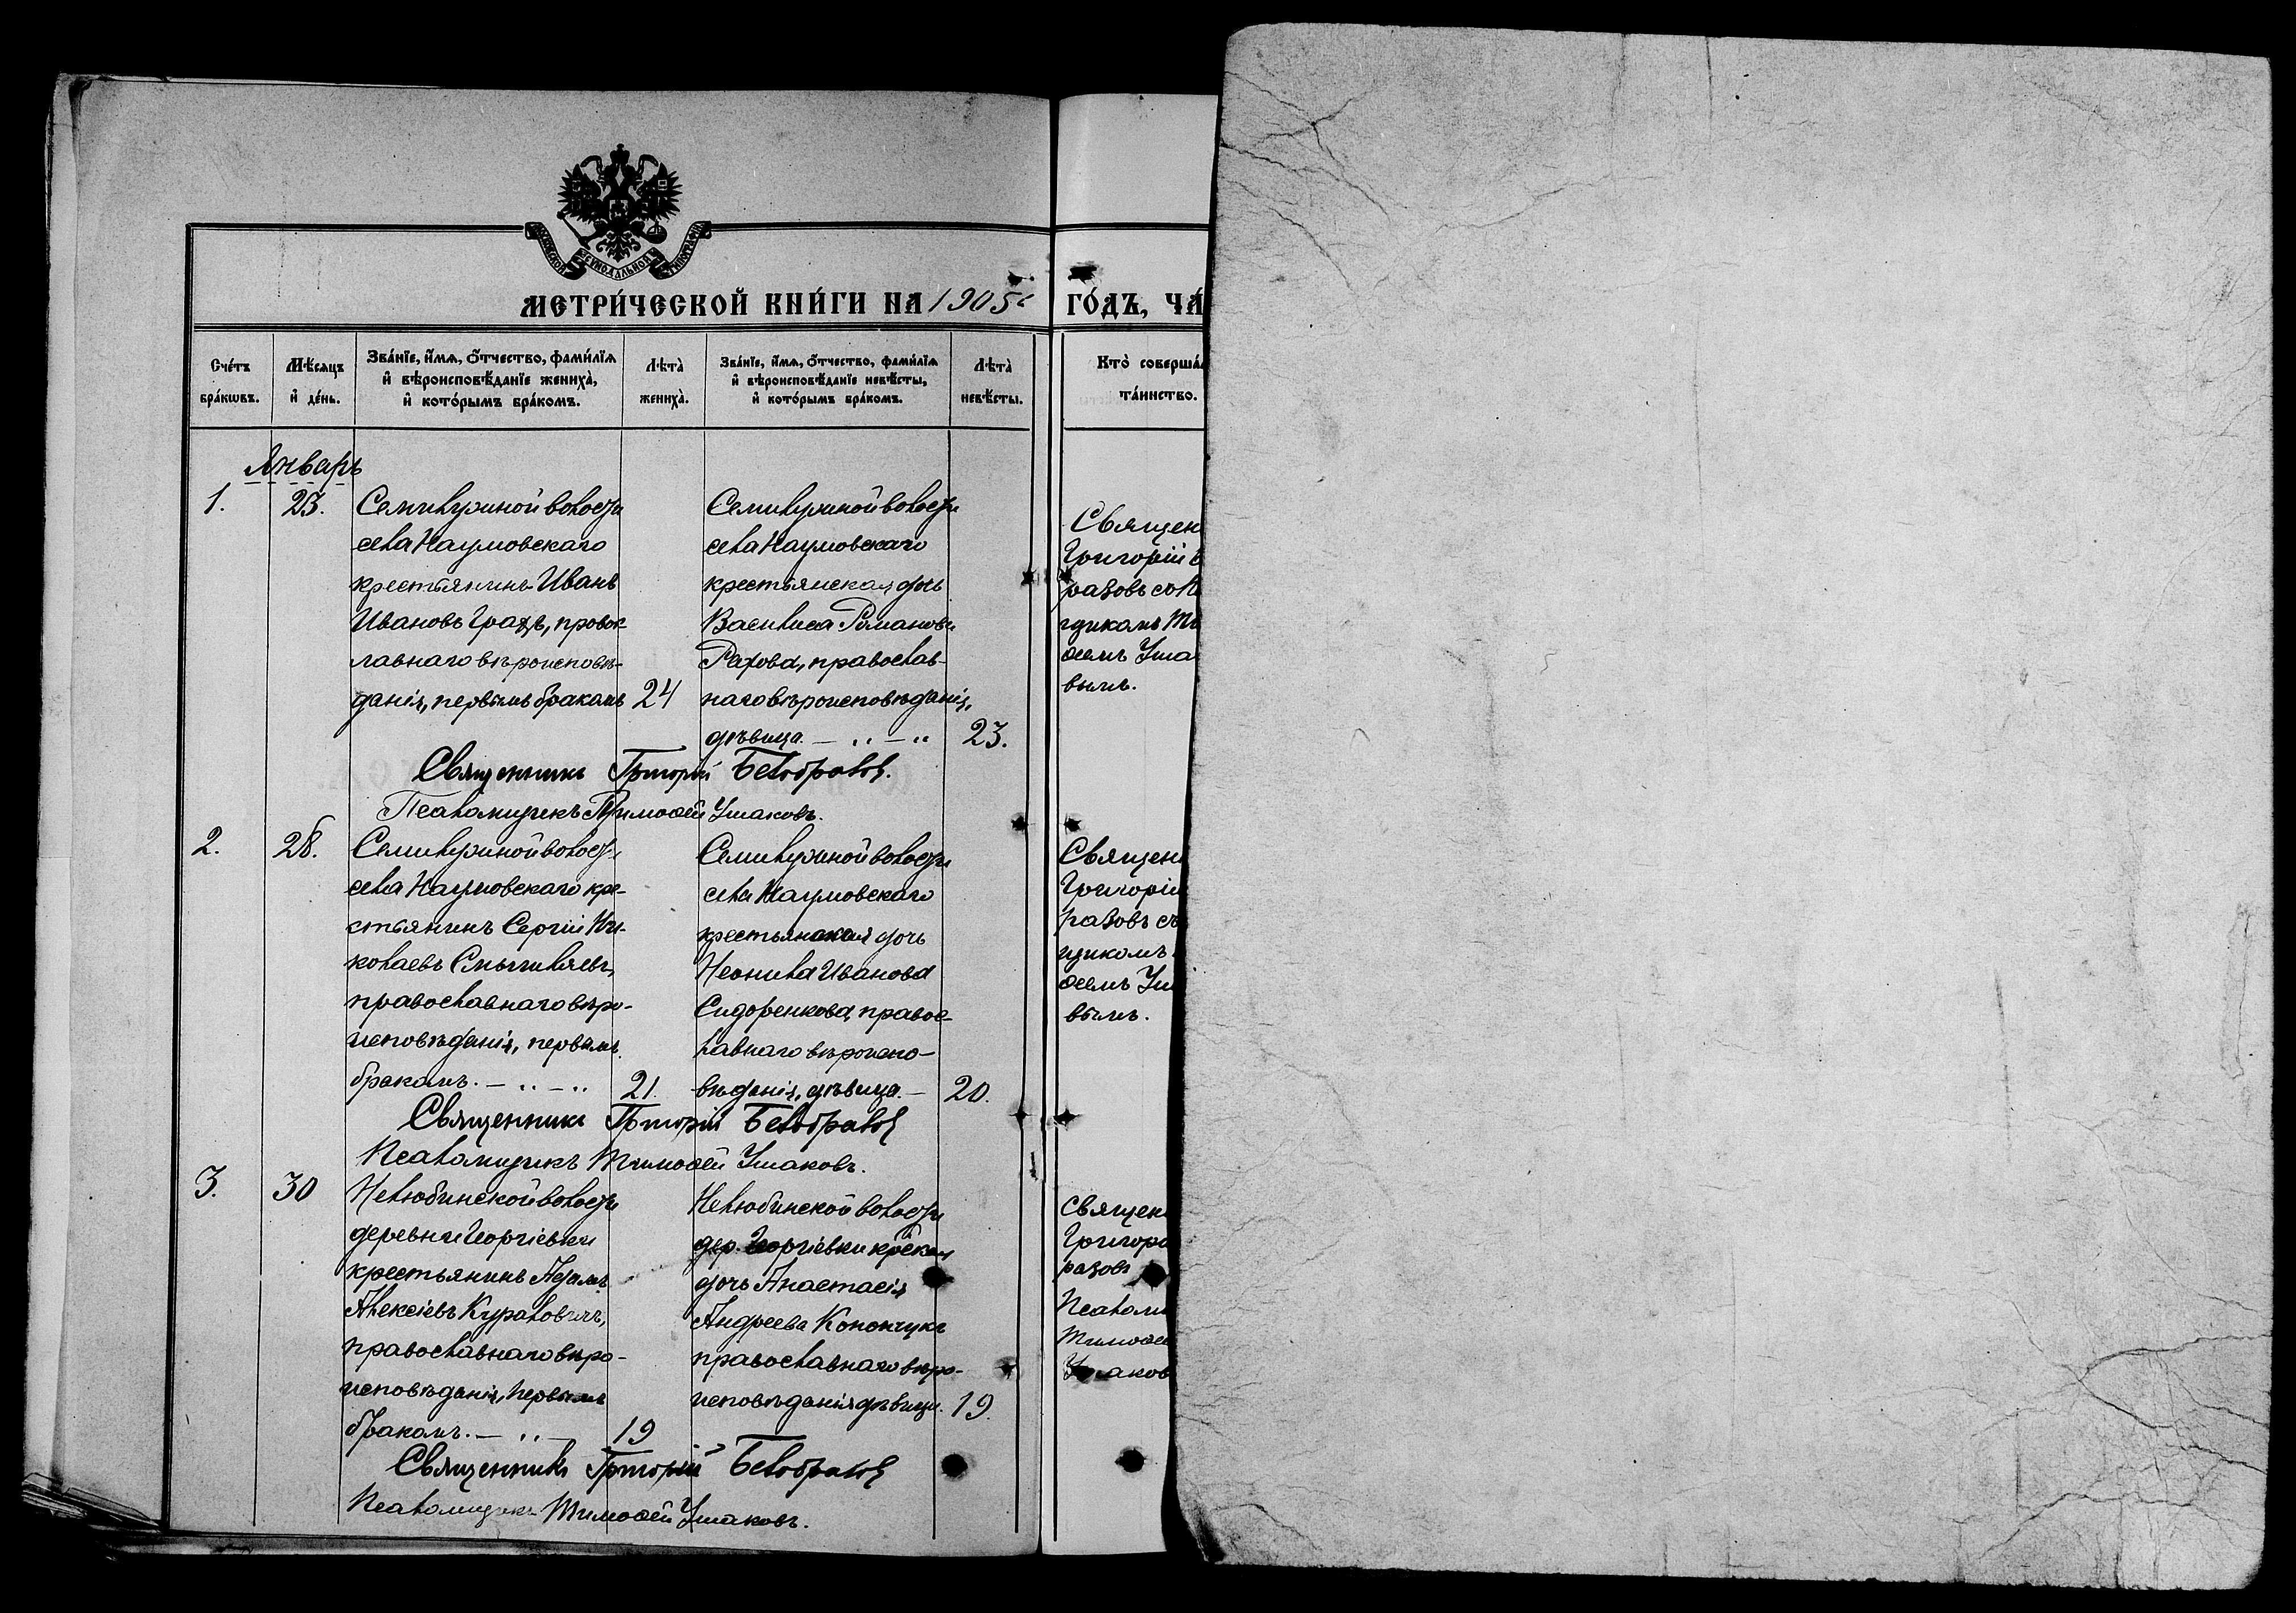 МОСКОВСКОЙ СѴНОДАЛЬНОЙ ТИПОГРАФІИ
МЕТРИ́ЧЕСКОЙ КНИ́ГИ НА 1905 ГО́ДЪ, ЧА́
Сче́тъ бра́кѡвъ.
Мѣ́сяцъ и҆ де́нь.
Зва́нїе, и҆́мѧ, ѻ҆́тчество, фами́лїѧ
и҆ вѣроисповѣ́данїе жениха̀,
и҆ кото́рымъ бра́комъ.
Лѣта̀ жениха̀.
Зва́нїе, и҆́мѧ, ѻ҆́тчество, фами́лїѧ
и҆ вѣроисповѣ́данїе невѣ́сты,
и҆ кото́рымъ бра́комъ.
Лѣта̀ невѣ́сты.
Кто̀ соверша́л
та́инство.
Январь
1.
23.
Семилужной волости
села Наумовскаго
крестьянинъ Иванъ
Ивановъ правос-
лавнаго вѣроисповѣ-
данія, первымъ бракомъ
24
Семилужной волости
села Наумовскаго
крестьянская дочь
Василиса Романова
православ-
наго вѣроисповѣданія,
дѣвица. — „ — „
23.
Священ
Григорій Б
разовъ съ П
щикомъ Ти
ѳеемъ Уша
вымъ.
Священникъ Григорій Бѣлобразовъ.
Псаломщикъ Тимоѳей Ушаковъ.
2.
28.
Семилужной волости
села Наумовскаго кре-
стьянинъ Сергій Ни-
колаевъ
православнаго вѣро-
исповѣданія, первымъ
бракомъ. — „ — „
21.
Семилужной волости
села Наумовскаго
крестьянская дочь
Неонила Иванова
Сидоренкова, правос-
лавнаго вѣроиспо-
вѣданія, дѣвица. —
20.
Священ
Григорій
разовъ съ
щикомъ
ѳеемъ Уш
вымъ.
Священникъ Григорій Бѣлобразовъ
Псаломщикъ Тимоѳей Ушаковъ.
3.
30
Нелюбинской волости
деревни Георгіевки
крестьянинъ Адамъ
Алексіевъ
православнаго вѣро-
исповѣданія, первымъ
бракомъ. — „ —
19
Нелюбинской волости
дер. Георгіевки кр-ская
дочь Анастасія
Андреева Конончукъ
православнаго вѣро-
исповѣданія дѣвица.
19.
Священ
Григорі
разовъ
Псалом
Тимоѳе
Ушаков
Священникъ Григорій Бѣлобразовъ
Псаломщикъ Тимоѳей Ушаковъ.